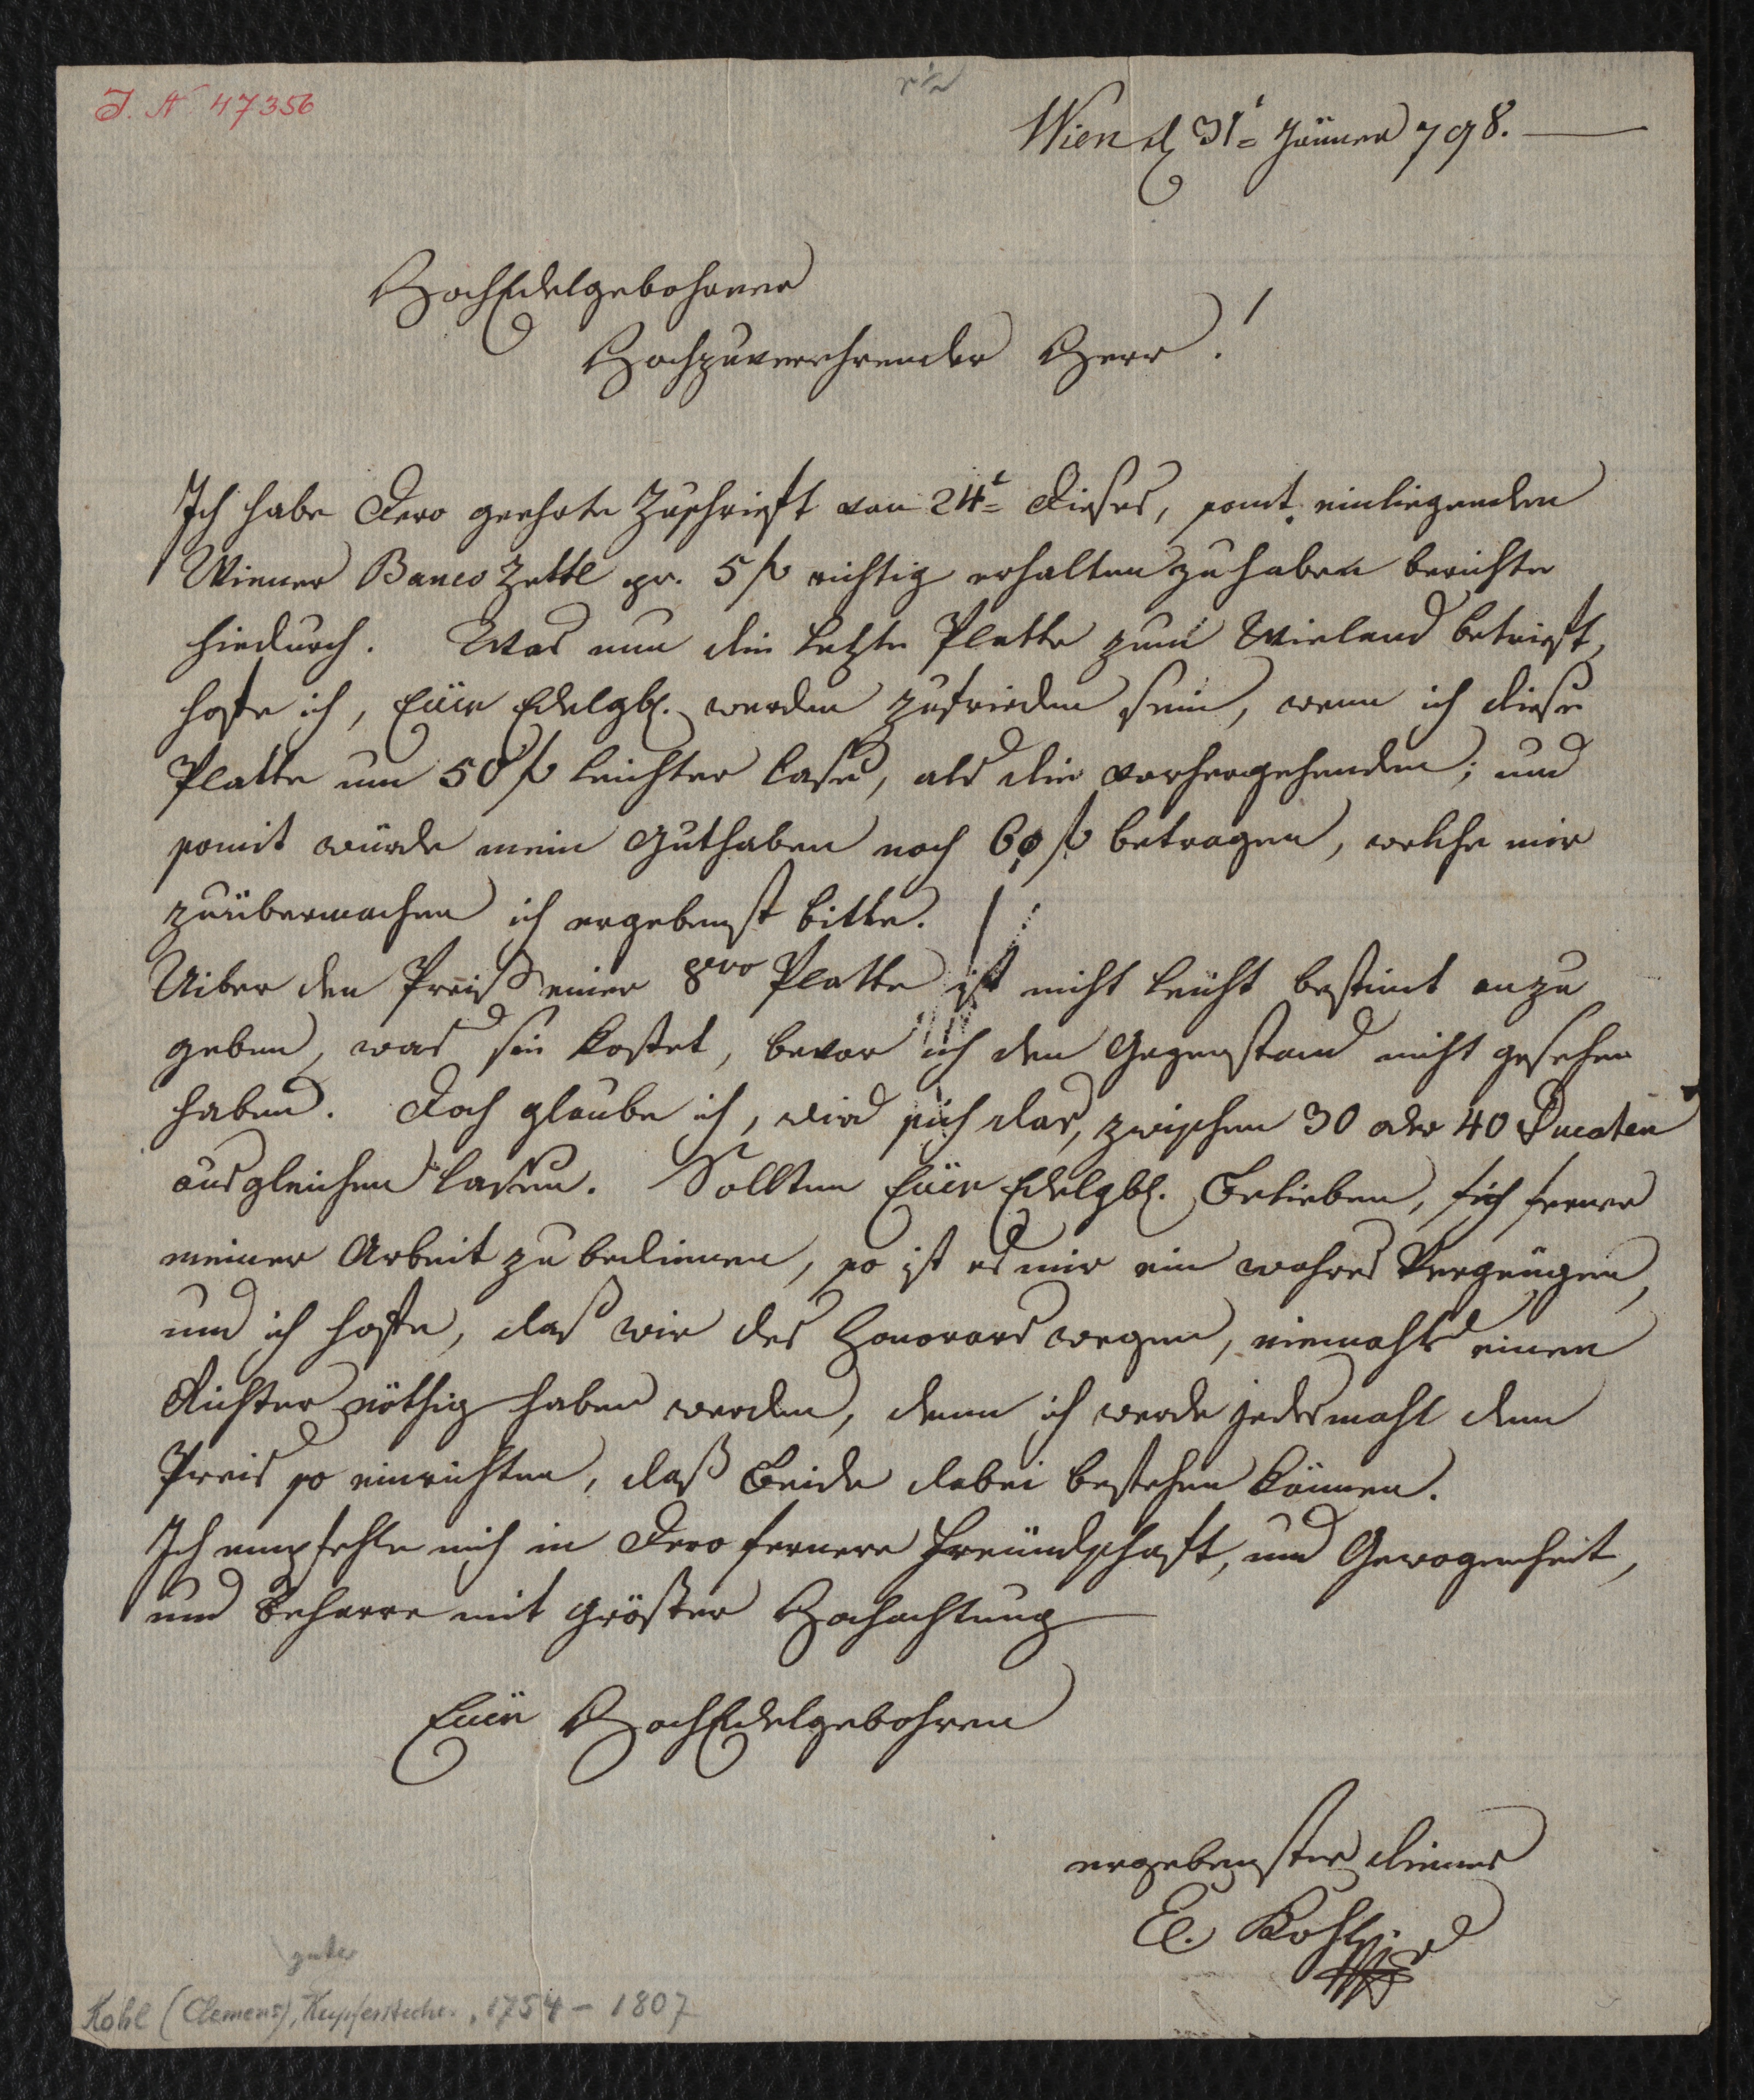 J. N 47356
Wien d 31t Jänner 798.
HochEdelgebohrner
Hochzuverehrender Herr!
Ich habe Dero geehrte Zuschrieft von 24t dieses, somt. einliegenden
Wiener Banco Zettl pr. 5 f richtig erhalten zu haben berichte
hiedurch. Was nun die letzte Platte zum Wieland betrieft,
hoffe ich, Euer Edelgb. werden zufrieden sein, wenn ich diese
Platte um 50 f leichter lasse, als die vorhergehenden; und
somit würde mein Guthaben noch 60 f betragen, welche mir
zuübermachen ich ergebenst bitte.
Uiber den Preiß einer 8vo Platte ist nicht leicht bestimt anzu
geben, was sie kostet, bevor ich den Gegenstand nicht gesehen
haben. Doch glaube ich, wird sich das, zwischen 30 oder 40 Ducaten
ausgleichen lassen. Sollten Euer Edelgb. Belieben, sich ferner
meiner Arbeit zu bedienen, so ist es mir ein wahres Vergnügen,
und ich hoffe, daß wir des Honorars wegen, niemahls einen
Richter nöthig haben werden, denn ich werde jedesmahl den
Preis so einrichten, daß Beide dabei bestehen können.
Ich empfehle mich in Dero fernere Freundschaft, und Gewogenheit,
und beharre mit größter Hochachtung
Euer HochEdelgebohren
ergebenster diener
C. Kohl
guter
Kohl (Clemens), Kupferstecher, 1754 - 1807